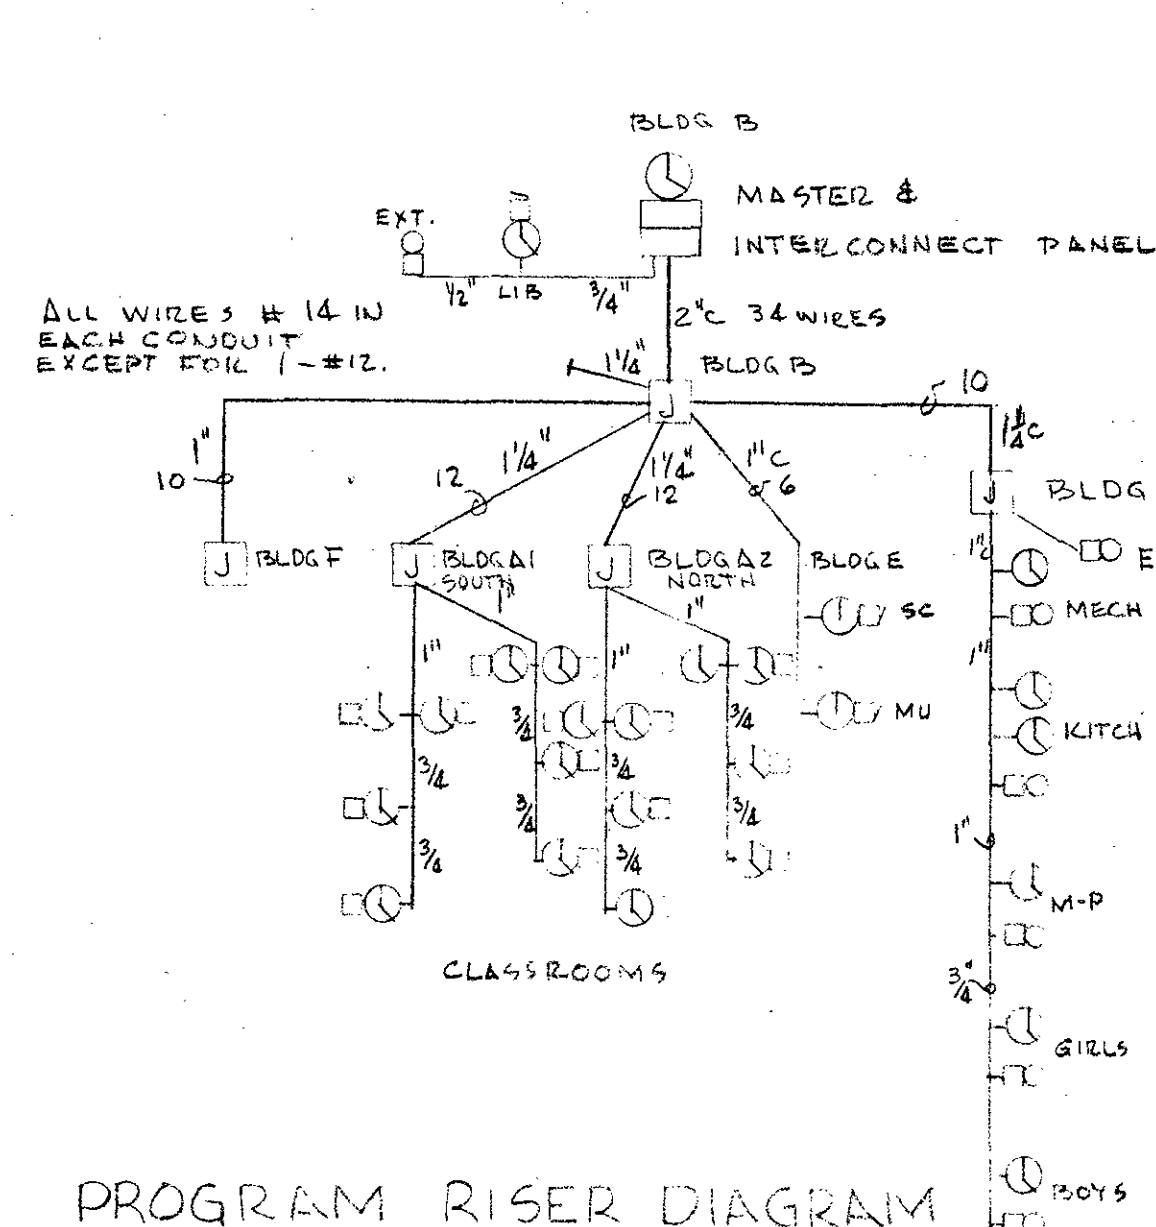 BLDG B
MASTER &
INTERCONNECT PANEL
EXT.
1/2" LIB 3/4"
ALL WIRES # 14 IN
EACH CONDUIT
EXCEPT FOR 1-#12.
2"C 34 WIRES
1 1/4" BLDG B
J
10
1 1/4 C
1"
10
12
1 1/4"
1 1/4"
12
1"C
6
J BLDG
J BLDG F
J BLDG A1
SOUTH
J BLDG A2
NORTH
BLDG E
1"C
E
1"
1"
SC
MECH
1"
1"
1"
MU
KITCH
3/4
3/4
3/4
3/4
3/4
3/4
3/4
3/4
1"
M-P
CLASSROOMS
3/4"
GIRLS
BOYS
PROGRAM RISER DIAGRAM